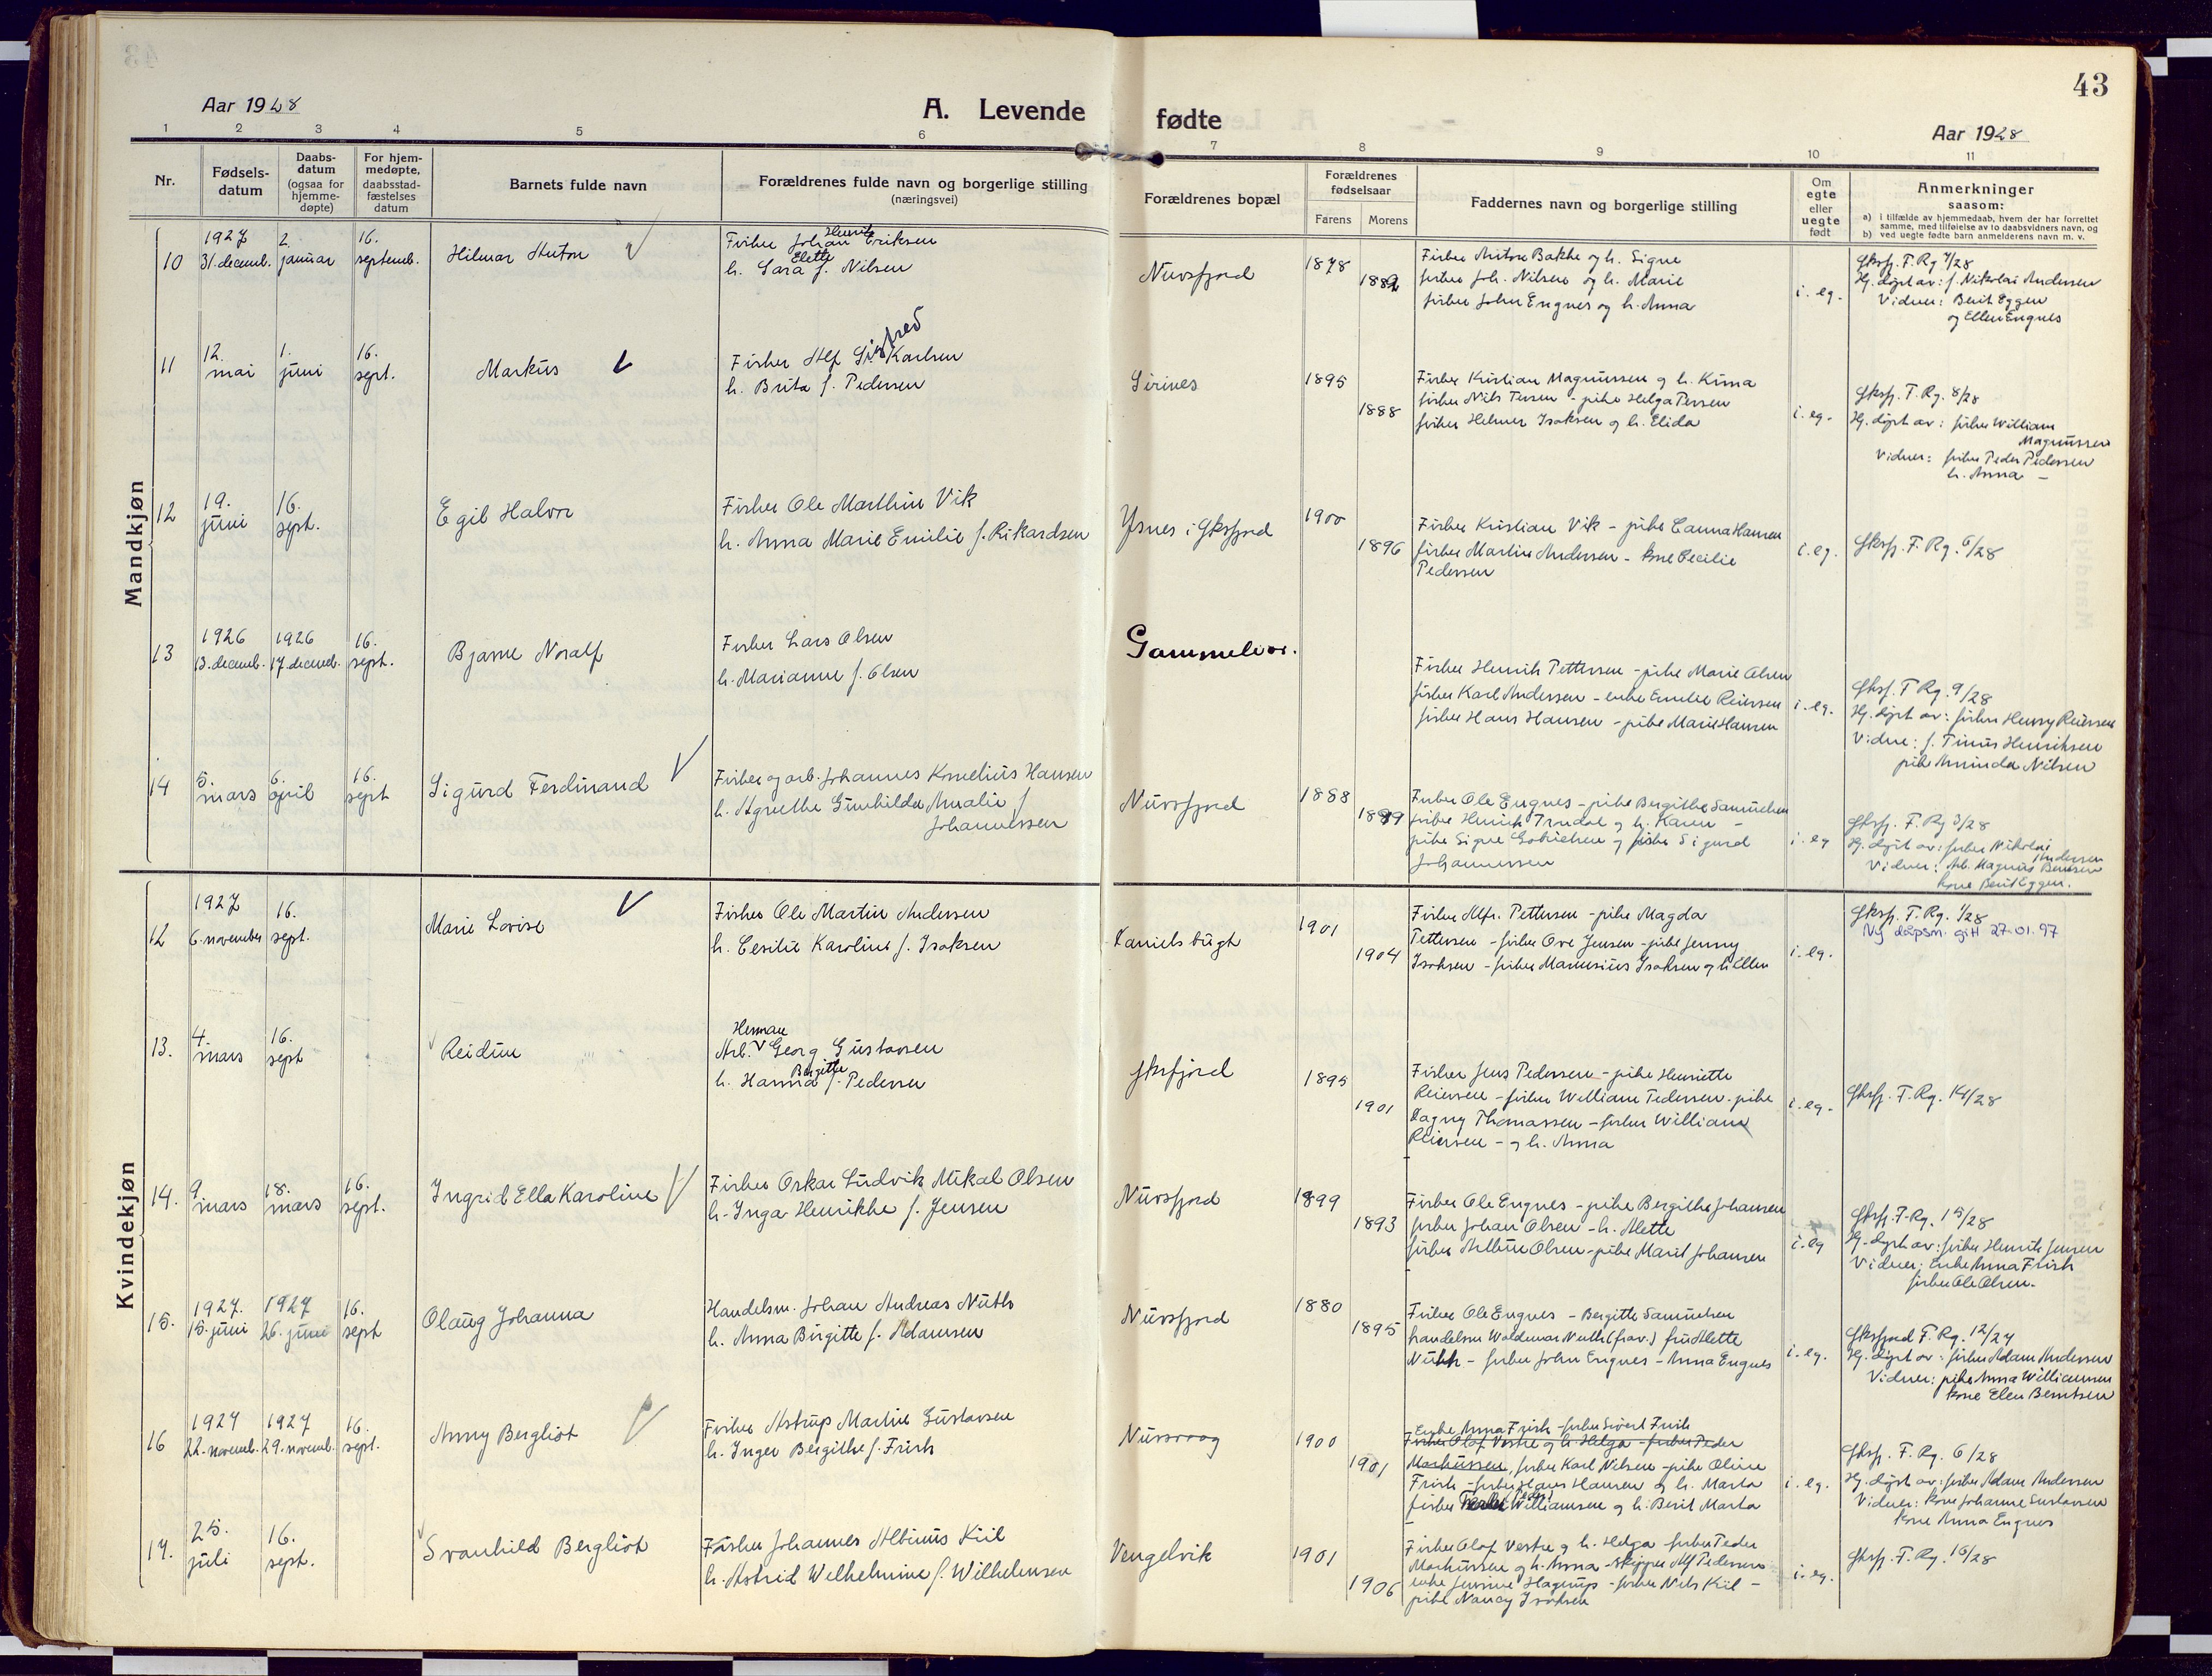 43
Aar 1928
A. Levende fødte
Aar 1928
1 2 3 4 5 6 7 8 9 10 11
Nr.
Fødsels-
datum
Daabs-
datum
(ogsaa for
hjemme-
døpte)
For hjem-
medøpte,
daabsstad-
fæstelses
datum
Barnets fulde navn
Forældrenes fulde navn og borgerlige stilling
(næringsvei)
Forældrenes bopæl
Forældrenes
fødselsaar
Farens Morens
Faddernes navn og borgerlige stilling
Om
egte
eller
uegte
født
Anmerkninger
saasom:
a) i tilfælde av hjemmedaab, hvem der har forrettet
samme, med tilføielse av to daabsvidners navn, og
b) ved uegte fødte barn anmelderens navn m. v.
Mandkjøn
10
1927
31. decemb.
2.
januar
16.
septemb.
Hilmar Anton
Fisker Johan Henrik Eriksen
h. Sara Elette f. Nilsen
Nuvsfjord
1878
1882
Fisker Anton Bakke og h. Signe
fisker Joh. Nilsen og h. Marie
fisker John Engnes og h. Anna
i. eg.
Øksfj. F. Rg. 7/28
Hj. døpt av: f. Nikolai Andersen
Vidner: Berit Eggen
og Ellen Engnes
11
12.
mai
1.
juni
16.
sept.
Markus
Fisker Alf Sigfred Karlsen
h. Brita f. Pedersen
1895
1888
Fisker Kristian Magnussen og h. Kirna
fisker Nils Persen - pike Helga Persen
fisker Helmer Isaksen og h. Elida
i. eg.
Øksfj. F. Rg. 8/28
Hj. døpt av: fisker William
Magnussen
Vidner: fisker Peder Pedersen
h. Anna -
12
19.
juni
16.
sept.
Egil Halvor
Fisker Ole Marthin Vik
h. Anna Marie Emilie f. Rikardsen
Ysnes i Øksfjord
1900
1896
Fisker Kristian Vik - pike Hansen
fisker Martin Andersen - kone Cecilie
Pedersen
i. eg.
Øksfj. F. Rg. 6/28
13
1926
13. decemb.
1926
17. decemb.
16.
sept.
Bjarne Noralf
Fisker Lars Olsen
h. Marianne f. Olsen
Gammelvær.
Fisker Henrik Pettersen - pike Marie Olsen
fisker Karl Andersen - enke Emelie Reiersen
fisker Hans Hansen - pike Marie Hansen
i. eg.
Øksf. F Rg. 9/28
Hj. døpt av: fisker Henry Reiersen
Vidne: f. Tinus Henriksen
pike Aminda Nilsen
14
5.
mars
6.
april
16.
sept
Sigurd Ferdinand
Fisker og arb. Johannes Kornelius Hansen
h. Agnethe Gunhilda Amalie f
Johannessen
Nuvsfjord
1888
1899
Fisker Ole Engnes - pike Bergithe Samuelsen
fisker Henrik Trudal og h. Karen -
pike Signe og fisker Sigurd
Johannessen
i. eg
Øksfj. F. Rg 3/28
Hj. døpt av: fisker Nikolai
Andersen
Vidner: Arb. Magnus Bernsen
kone Berit Eggen.
Kvindekjøn
12
1927
6. november
16.
sept.
Marie Lovise
Fisker Ole Martin Andersen
h. Cesilie Karoline f. Isaksen
Danielsbugt
1901
1904
Fisker Alfr. Pettersen - pike Magda
Pettersen - fisker Ove Jensen - pike Jenny
Isaksen - fisker Marensius Isaksen og h. Ellen
i. eg.
Øksfj. F. Rg. 1/28
Ny dåpsm. gitt 27.01.97
13.
4.
mars
16.
sept
Reidun
Arb. Herman Georg Gustavsen
h. Hanna Bergitte f. Pedersen
Øksfjord
1895
1901
Fisker Jens Pedersen - pike Henriette
Reiersen - fisker William Pedersen - pike
Dagny Thomassen - fisker William
Reiersen - og h. Anna
i. eg.
Øksfj. F. Rg. 14/28
14.
9.
mars
18.
mars
16.
sept.
Ingrid Ella Karoline
Fisker Oskar Ludvik Mikal Olsen
h. Inga Henrikke f. Jensen
Nuvsfjord
1899
1893
Fisker Ole Engnes - pike Bergithe Johansen
fisker Johan Olsen - h. Alette
fisker Olsen - pike Marit Johansen
i. eg
Øksfj. F. Rg. 15/28
Hj. døpt av: fisker Henrik Jensen
Vidner: Enke Anna Frish
fisker Ole Olsen.
15.
1927.
15. juni
1927
26. juni
16.
sept
Olaug Johanna
Handelsm. Johan Andreas Nuth
h. Anna Birgitte f. Adamsen
Nuvsfjord
1880
1895
Fisker Ole Engnes - Bergitte Samuelsen
handelsm Waldemar Nuth (frav.) fru Alette
Nuth - fisker John Engnes - Anna Engnes
i. eg.
Øksfjord F. Rg. 12/27
Hj. døpt av: fisker Adam Andersen
Vidner: pike Anna Williamsen
kone Elen Berntsen
16
1927
22. novemb.
1927
29. novemb.
16.
sept.
Anny Bergliot
Fisker Astrup Martin Gustavsen
h. Inger Bergithe f. Frish
Nuvsvaag
1900
1901
Enke Anna Frish - fisker Sivert Frish
Fisker Olaf Vestre og h. Helga - fisker Peder
Markussen, fisker Karl Nilsen - pike Oline
Frish - fisker Hans Hansen og h. Marta
fisker (Peder) Williamsen og h. Berit Marta
i. eg.
Øksfj. F. Rg. 6/28
Hj. døpt av: fisker Adam Andersen
Vidner: kone Johanne Gustavsen
kone Anna Engnes
17.
25.
juli
16.
sept.
Svanhild Bergliot
Fisker Johannes Albinus Kiil
h. Astrid Wilhelmine f. Wilhelmsen
Vengelvik
1901
1906
Fisker Olaf Vestre og h. Helga - fisker Peder
Markussen og h. Anna - skipper Alf Pedersen
enke Jensine Hagerup - fisker Nils Kiil -
pike Nancy Isaksen
i. eg.
Øksfj. F. Rg. 16/28